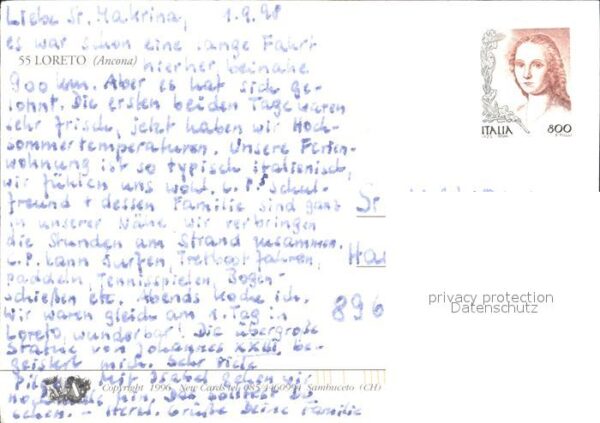 Liebe Sr. Makrina, 1.9.98
es war schon eine lange Fahrt
55 LORETO (Ancona) hierher beinahe
900 km. Aber es hat sich ge-
lohnt. Die ersten beiden Tage waren
sehr frisch, jetzt haben wir Hoch-
sommertemperaturen. Unsere Ferien-
wohnung ist so typisch italienisch,
wir fühlen uns wohl. L.P.s Schul-
freund + dessen Familie sind ganz
in unserer Nähe wir verbringen
die Stunden am Strand zusammen.
L.P. kann surfen, Tretboot fahren,
paddeln, Tennisspielen, Bogen-
schießen etc. Abends koche ich.
Wir waren gleich am 1. Tag in
Loreto, wunderbar! Die übergroße
Statue von Johannes XXIII. be-
geistert mich. Sehr viele
Pilger. Mit Isabel gehen wir
Copyright 1996 New Cards tel. 085/ Sambuceto (CH)
hin. Das solltest Du
sehen. – Herzl. Grüße Deine Familie
ITALIA 800
Sr
Ha
896
privacy protection
Datenschutz